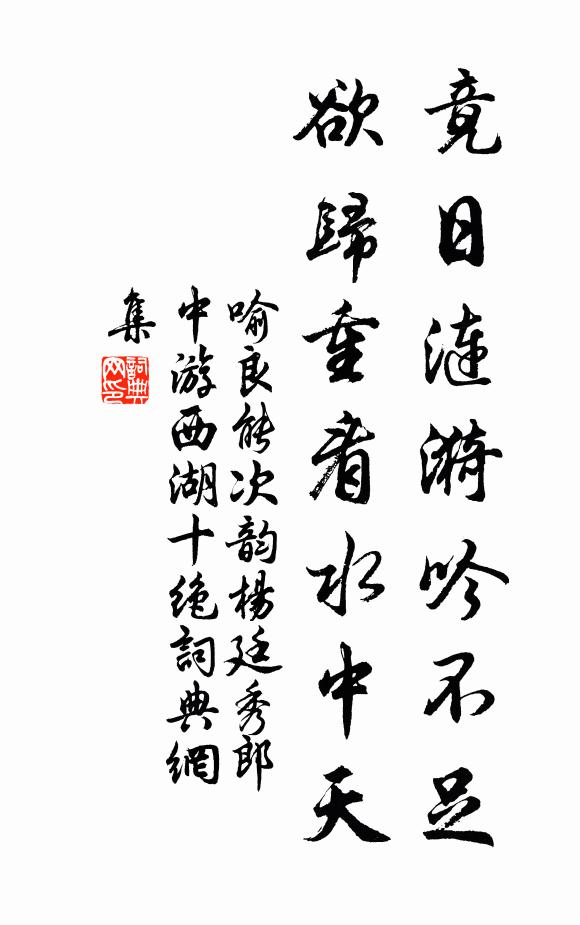 竟日漣漪吟不足
欲歸重看水中天
喻良能次韵楊廷秀郎
中游西湖十絶詞典網
集
詞典网印